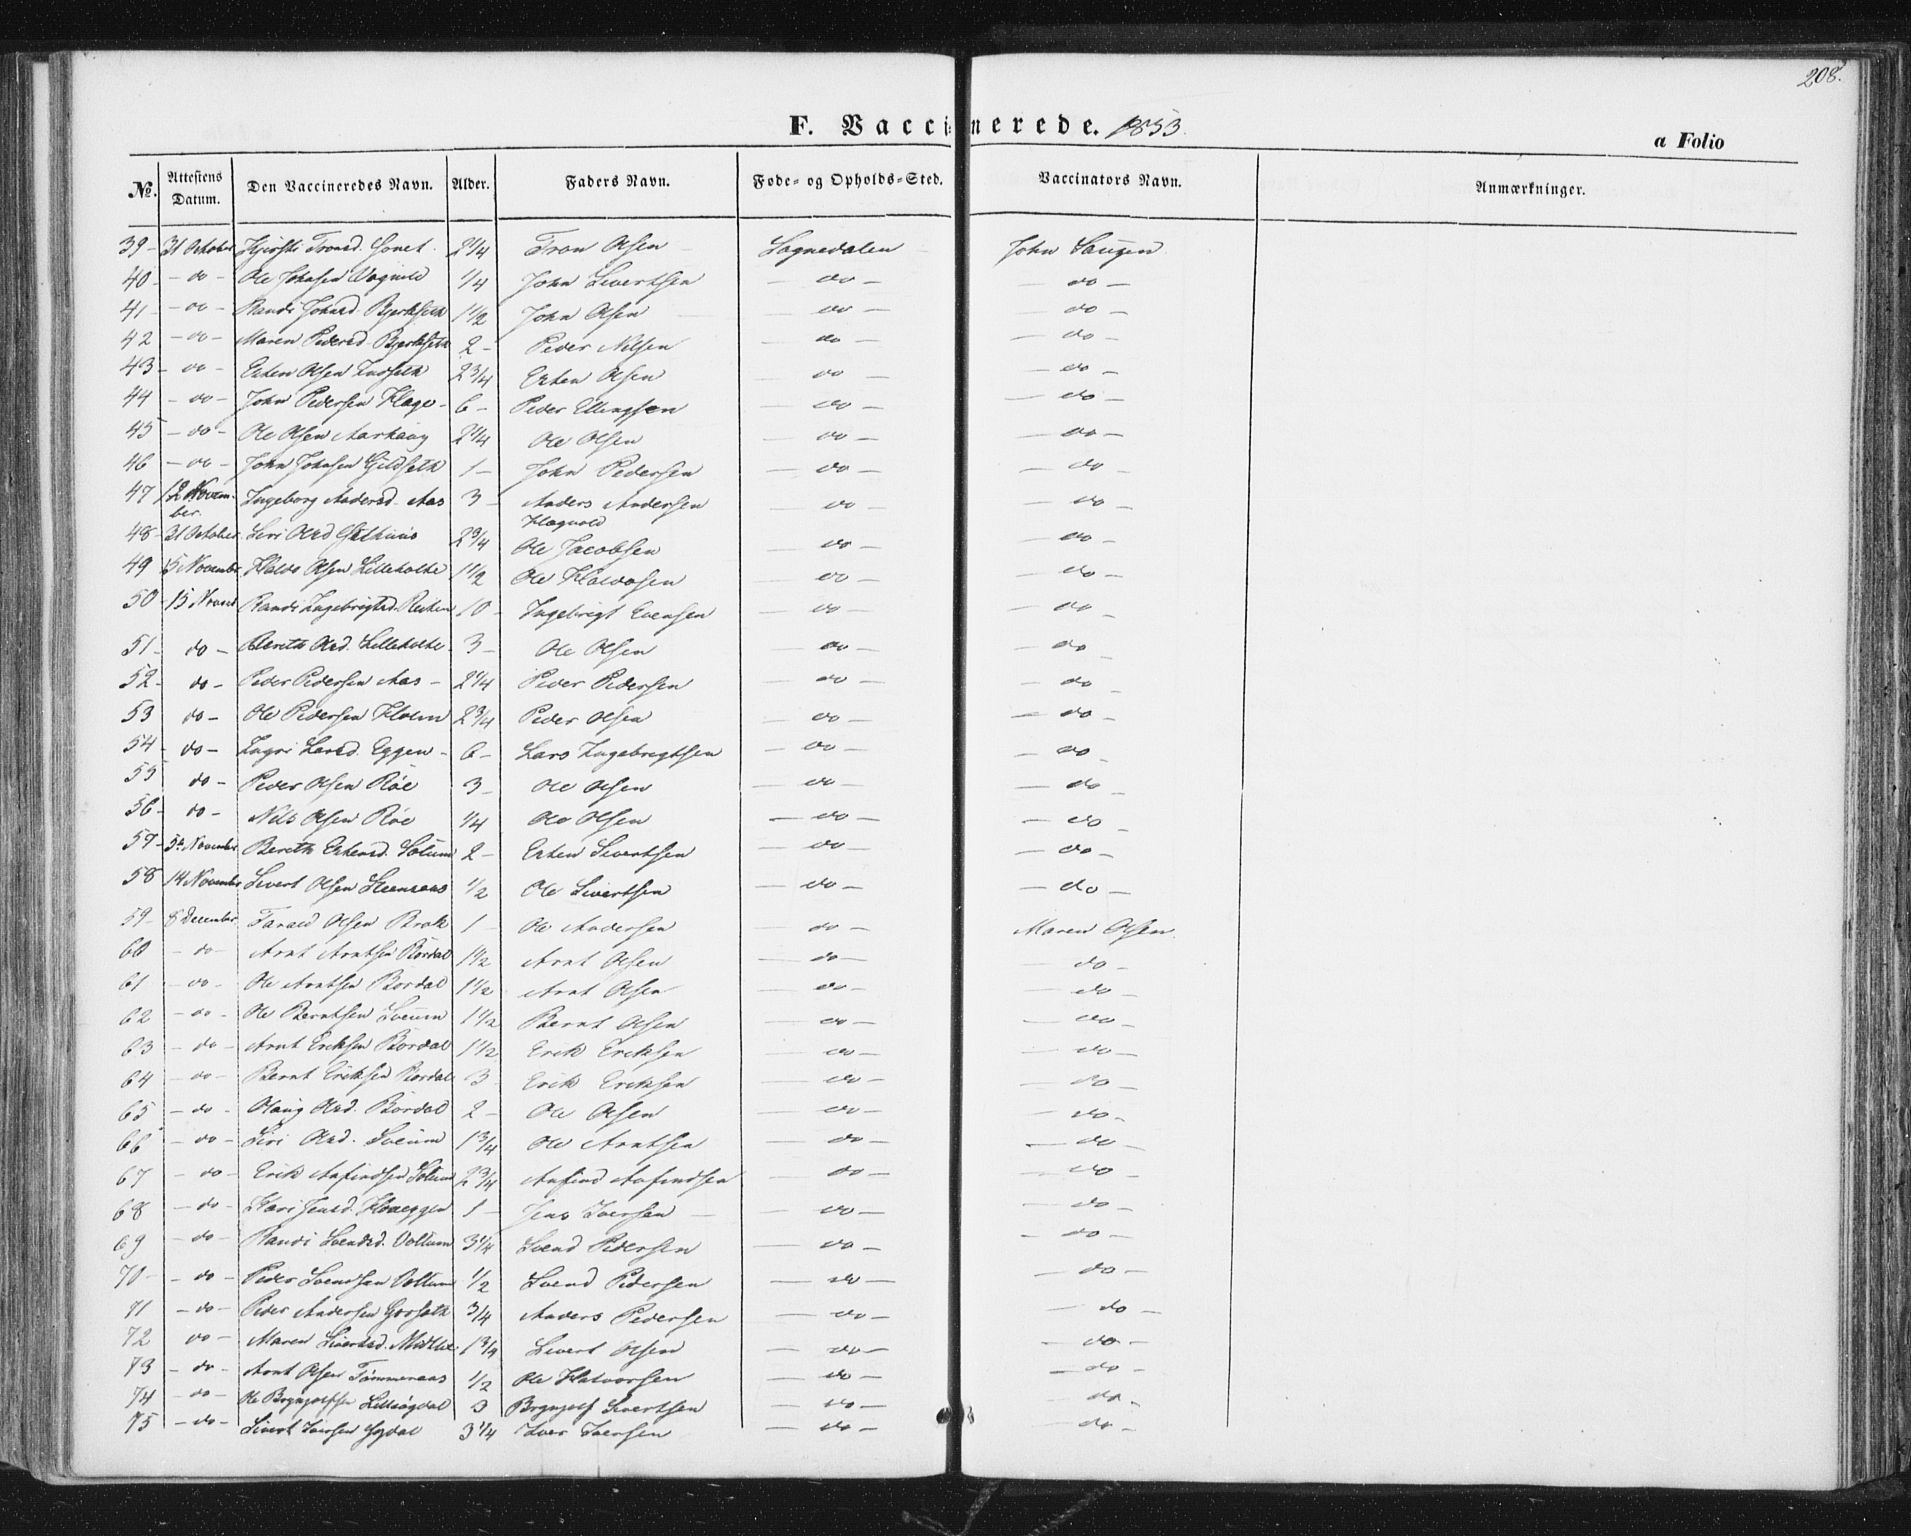 208.
F. Vaccinerede. 1853
a Folio
No. Attestens Datum. Den Vaccineredes Navn. Alder. Faders Navn. Føde- og Opholds-Sted. Vaccinators Navn. Anmærkninger.
39 - 31 October Kjersti Tronsd. 2 1/4 Tron Olsen Sognedalen John
40 - do - Ole Johnsen 1/4 John Sivertsen - do - - do -
41 - do - Randi Johnsd. Bjerkseth 1 1/2 John Olsen - do - - do -
42 - do - Maren Pedersd. Bjerkseth 2 - Peder Nilsen - do - - do -
43 - do - Esten Olsen 2 3/4 Esten Olsen - do - - do -
44 - do - John Pedersen Hage - 6 - Peder Ellingsen - do - - do -
45 - do - Ole Olsen Aarhaug 2 1/4 Ole Olsen - do - - do -
46 - do - John Johnsen Gildseth 1 - John Pedersen - do - - do -
47 12 November. Ingeborg Andersd. Aas 3 - Anders Andersen - do - - do -
48 - 31 October. Siri Olsd 2 3/4 Ole Jacobsen - do - - do -
49 15 November Halvo Olsen Lilleholte 1 1/2 Ole Halvosen - do - - do -
50 - 15 Novemb Randi Ingebrigtsd. 10 - Ingebrigt Evensen - do - - do -
51 - do - Bereth Olsd. Lilleholte 3 - Ole Olsen - do - - do -
52 - do - Peder Pedersen Aas - 2 1/4 Peder Pedersen - do - - do -
53 do - Ole Pedersen Holem 2 3/4 Peder Olsen - do - - do -
54 - do - Ingri Larsd. Eggen - 6 - Lars Ingebrigtsen - do - - do -
55 do - Peder Olsen Röe 3 - Ole Olsen - do - - do -
56 - do - Nils Olsen Röe 1/4 Ole Olsen - do - - do -
57 - 5te November Bereth Estensd. Solum 2 - Esten Sivertsen - do - - do -
58 14 November Sivert Olsen 1/2 Ole Sivertsen - do - - do -
59 - 8 December Olsen 1 - Ole Andersen - do - Maren Olsen
60 - do - Arnt Arntsen Bordal 1 1/2 Arnt Olsen - do - - do -
61 - do - Ole Arntsen Bordal 1 1/2 Arnt Olsen - do - - do -
62 - do - Ole Berntsen Soeum 1 1/2 Bernt Olsen - do - - do -
63 - do - Arnt Eriksen Bordal 1 1/2 Erik Eriksen - do - - do -
64 - do - Bernt Eriksen Bordal 3 Erik Eriksen - do - - do -
65 - do - Olsd. Bordal 2 - Ole Olsen - do - - do -
66 - do - Siri Olsd. Soeum 1 3/4 Ole Arntsen - do - - do -
67 - do - Erik Anfindsen Solum 2 3/4 Anfind Anfindsen - do - - do -
68 - do - Kari Jensd. 1 - Jens Iversen - do - - do -
69 - do - Randi Svendsd. Voltum 3 1/4 Svend Pedersen - do - - do -
70 - do - Peder Svendsen Voltum 1/2 Svend Pedersen - do - - do -
71 - do - Peder Andersen Gorseth 3/4 Anders Pedersen - do - - do -
72 do - Maren Sivertsd. 1 3/4 Sivert Olsen - do - - do -
73 - do - Arnt Olsen Tömmeraas 1/2 Ole Halvorsen - do - - do -
74 - do - Ole Brynjolfsen 3 Brynjolf Sivertsen - do - - do -
75 - do - Sivert Iversen 3 1/4 Iver Iversen - do - - do -